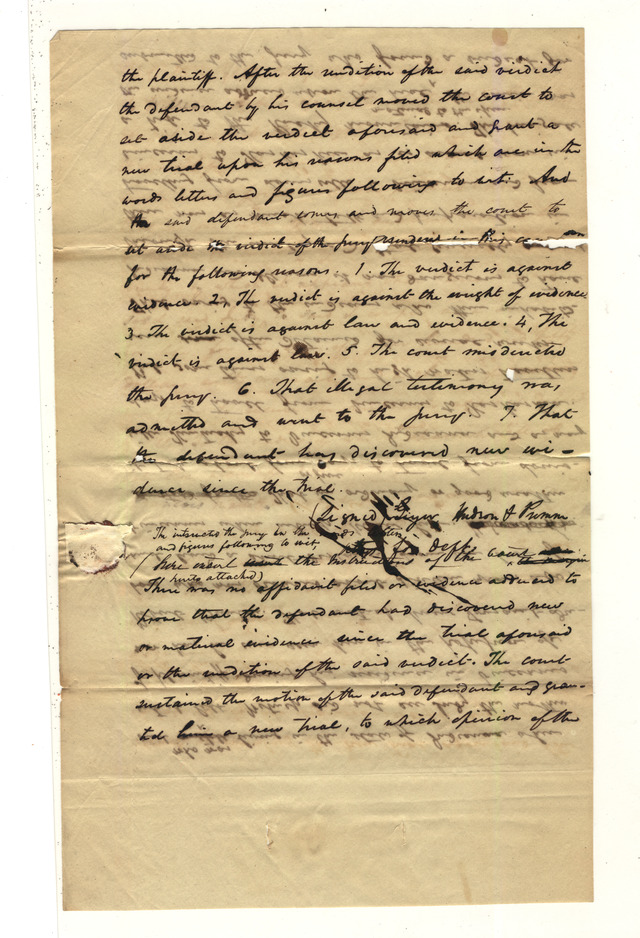 the plaintiff. After the rendition of the said verdict
the defendant by his counsel moved the court to
set aside the verdict aforesaid and grant a
new trial upon his reasons filed which are in the
words letters and figures following to wit: And
the said defendant comes and moves the court to
set aside the verdict of the jury rendered in this
for the following reasons. 1. The verdict is against
evidence 2, The verdict is against the weight of evidence
3. The verdict is against law and evidence. 4, The
verdict is against law. 5. The court misdirected
the jury. 6. That illegal testimony was
admitted and went to the jury. 7. That
the defendant has discovered new evi-
dence since the trial
Signed Hudson &
The instructed the jury in the words
and figures following to wit,
for Deft
(Here insert the Instructions of the court
hereto attached)
There was no affidavit filed or evidence adduced to
prove that the defendant had discovered new
or material evidence since the trial aforesaid
or the rendition of the said verdict. The court
sustained the motion of the said defendant and gran-
ted him a new trial, to which opinion of the